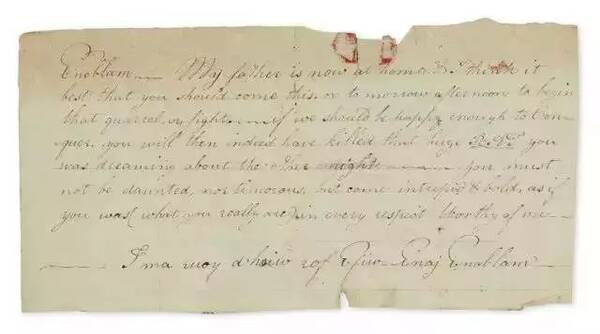 Enoblam — My father is now at home & I think it
best that you should come this, or to morrow afternoon to begin
that quarrel, or fight. — if we should be happy enough to Con-
quer, you will then indeed have killed that huge you
was dreaming about the other night ——— you must
not be daunted, nor timorous, but come intrepid & bold, as if
you was (what you really are) in every respect Worthy of me —
— I ma ruoy rof Efiw — Enaj Enoblam —